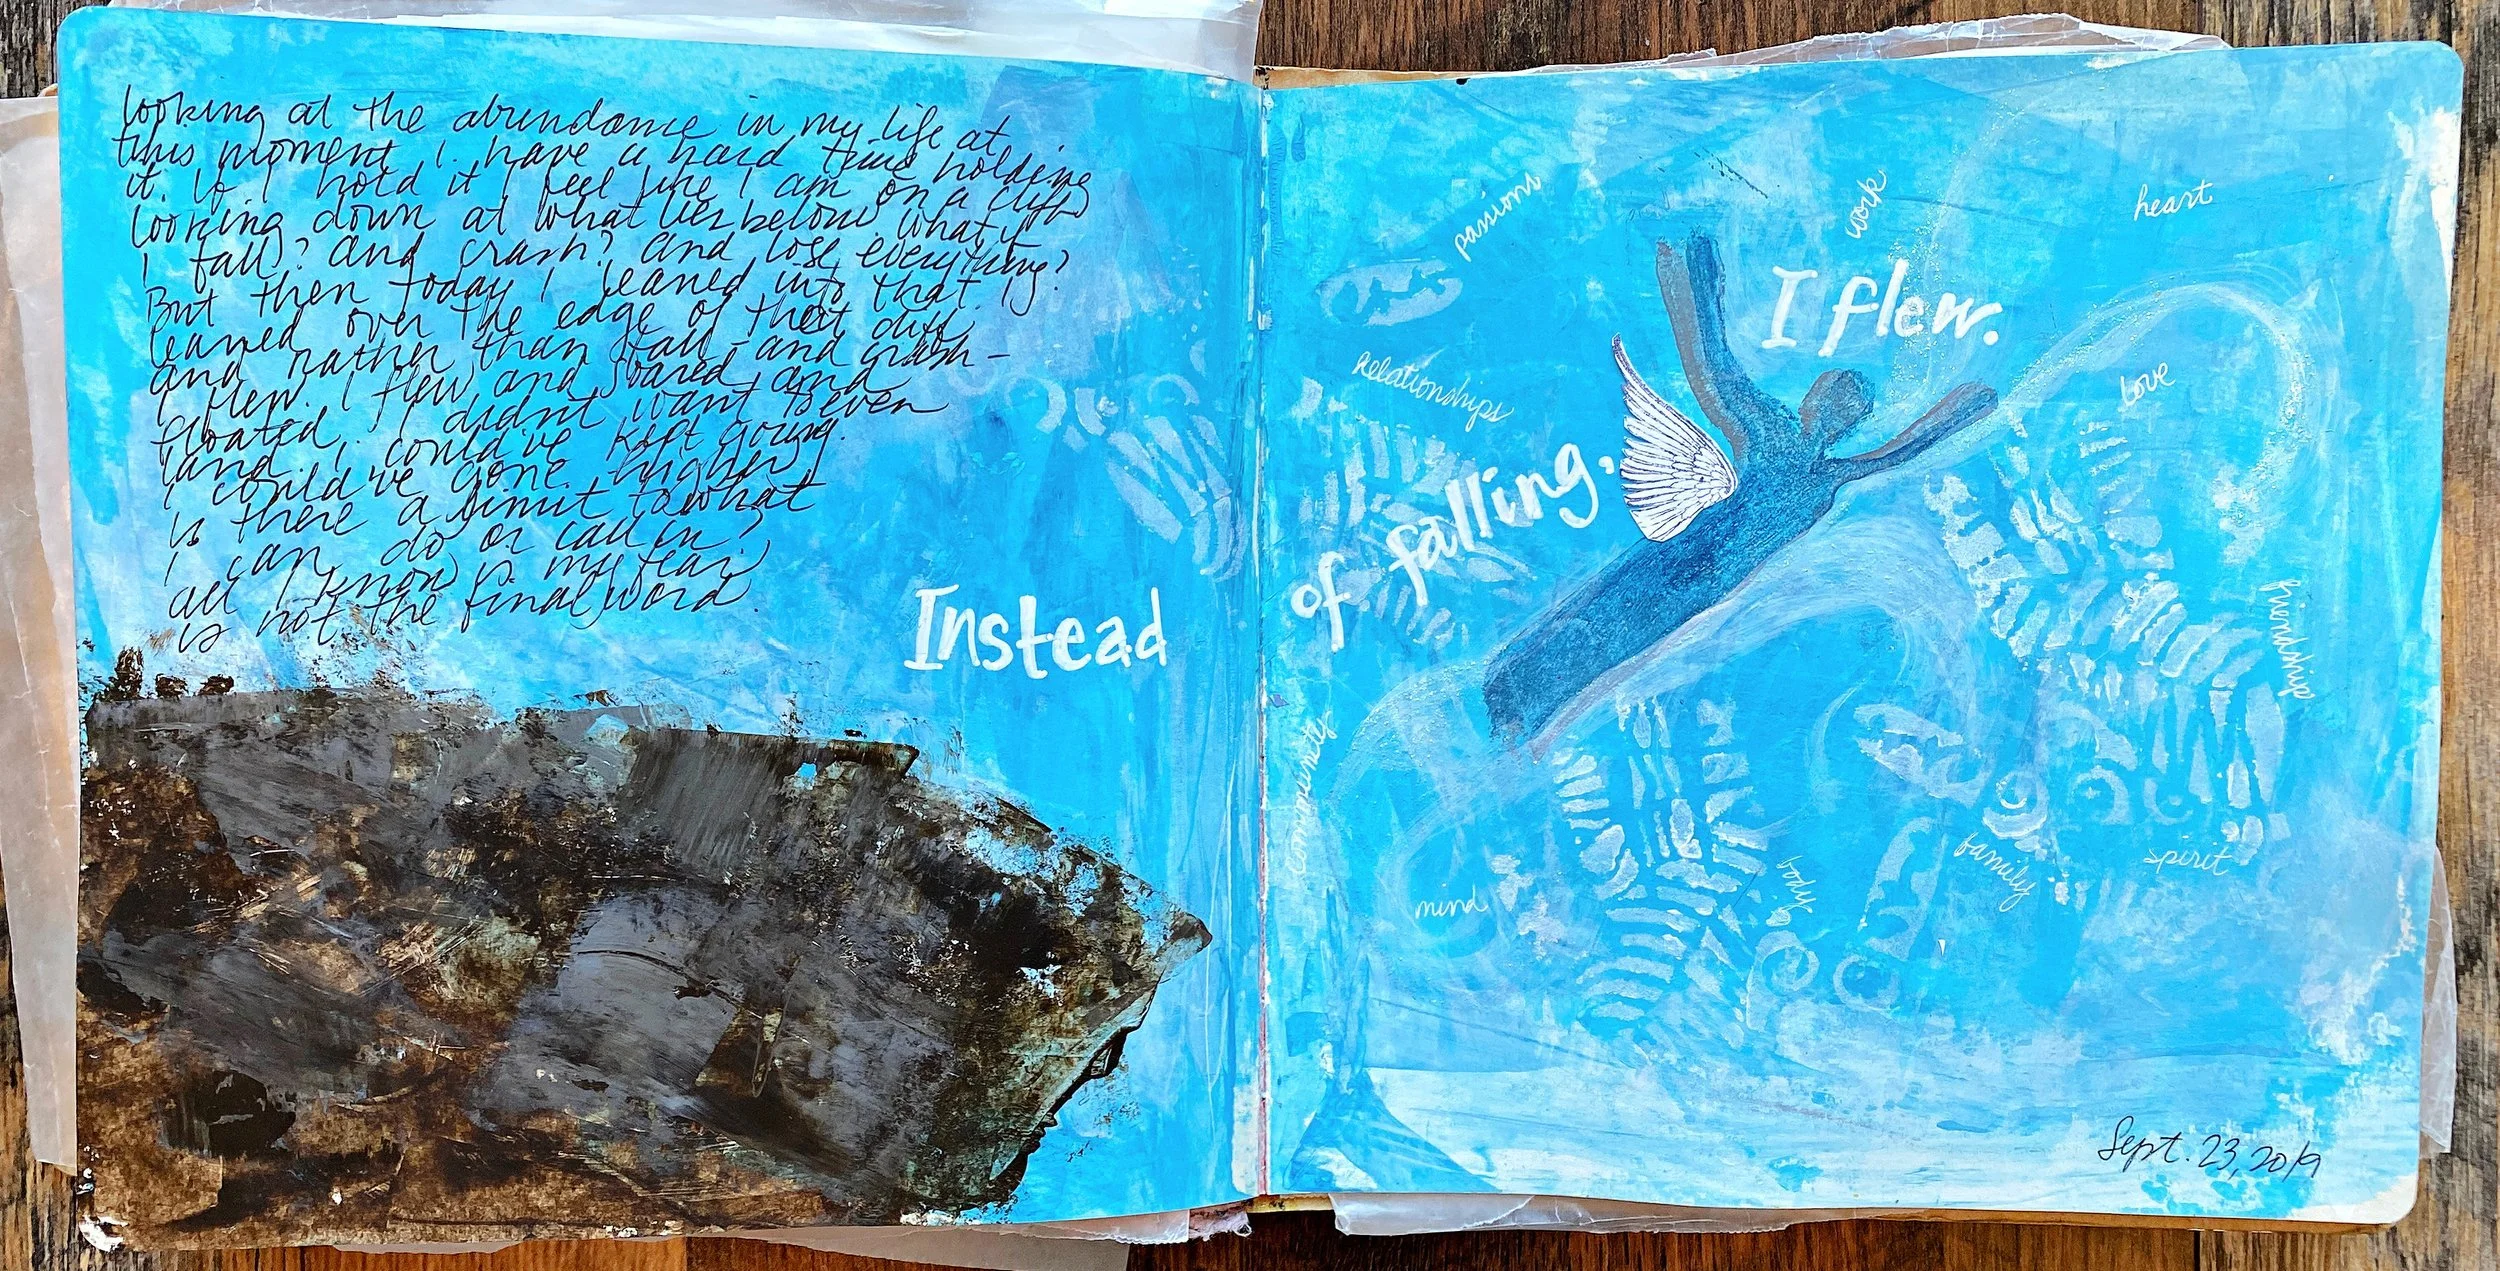 looking at the abundance in my life at
this moment, I have a hard time holding
it. If I hold it I feel like I am on a cliff
looking down at what lies below. what if
I fall? and crash? and lose everything?
But then today I leaned into that. I
leaned over the edge of that cliff
and rather than fall - and crash -
I flew. I flew and soared and
floated. I didn't want to even
land. I could've kept going.
I could've gone higher.
is there a limit to what
I can do or call in?
all I know is my fear
is not the final word.
Instead
of falling,
I flew.
passions
work
heart
Relationships
love
friendship
community
mind
body
family
spirit
Sept. 23, 2019